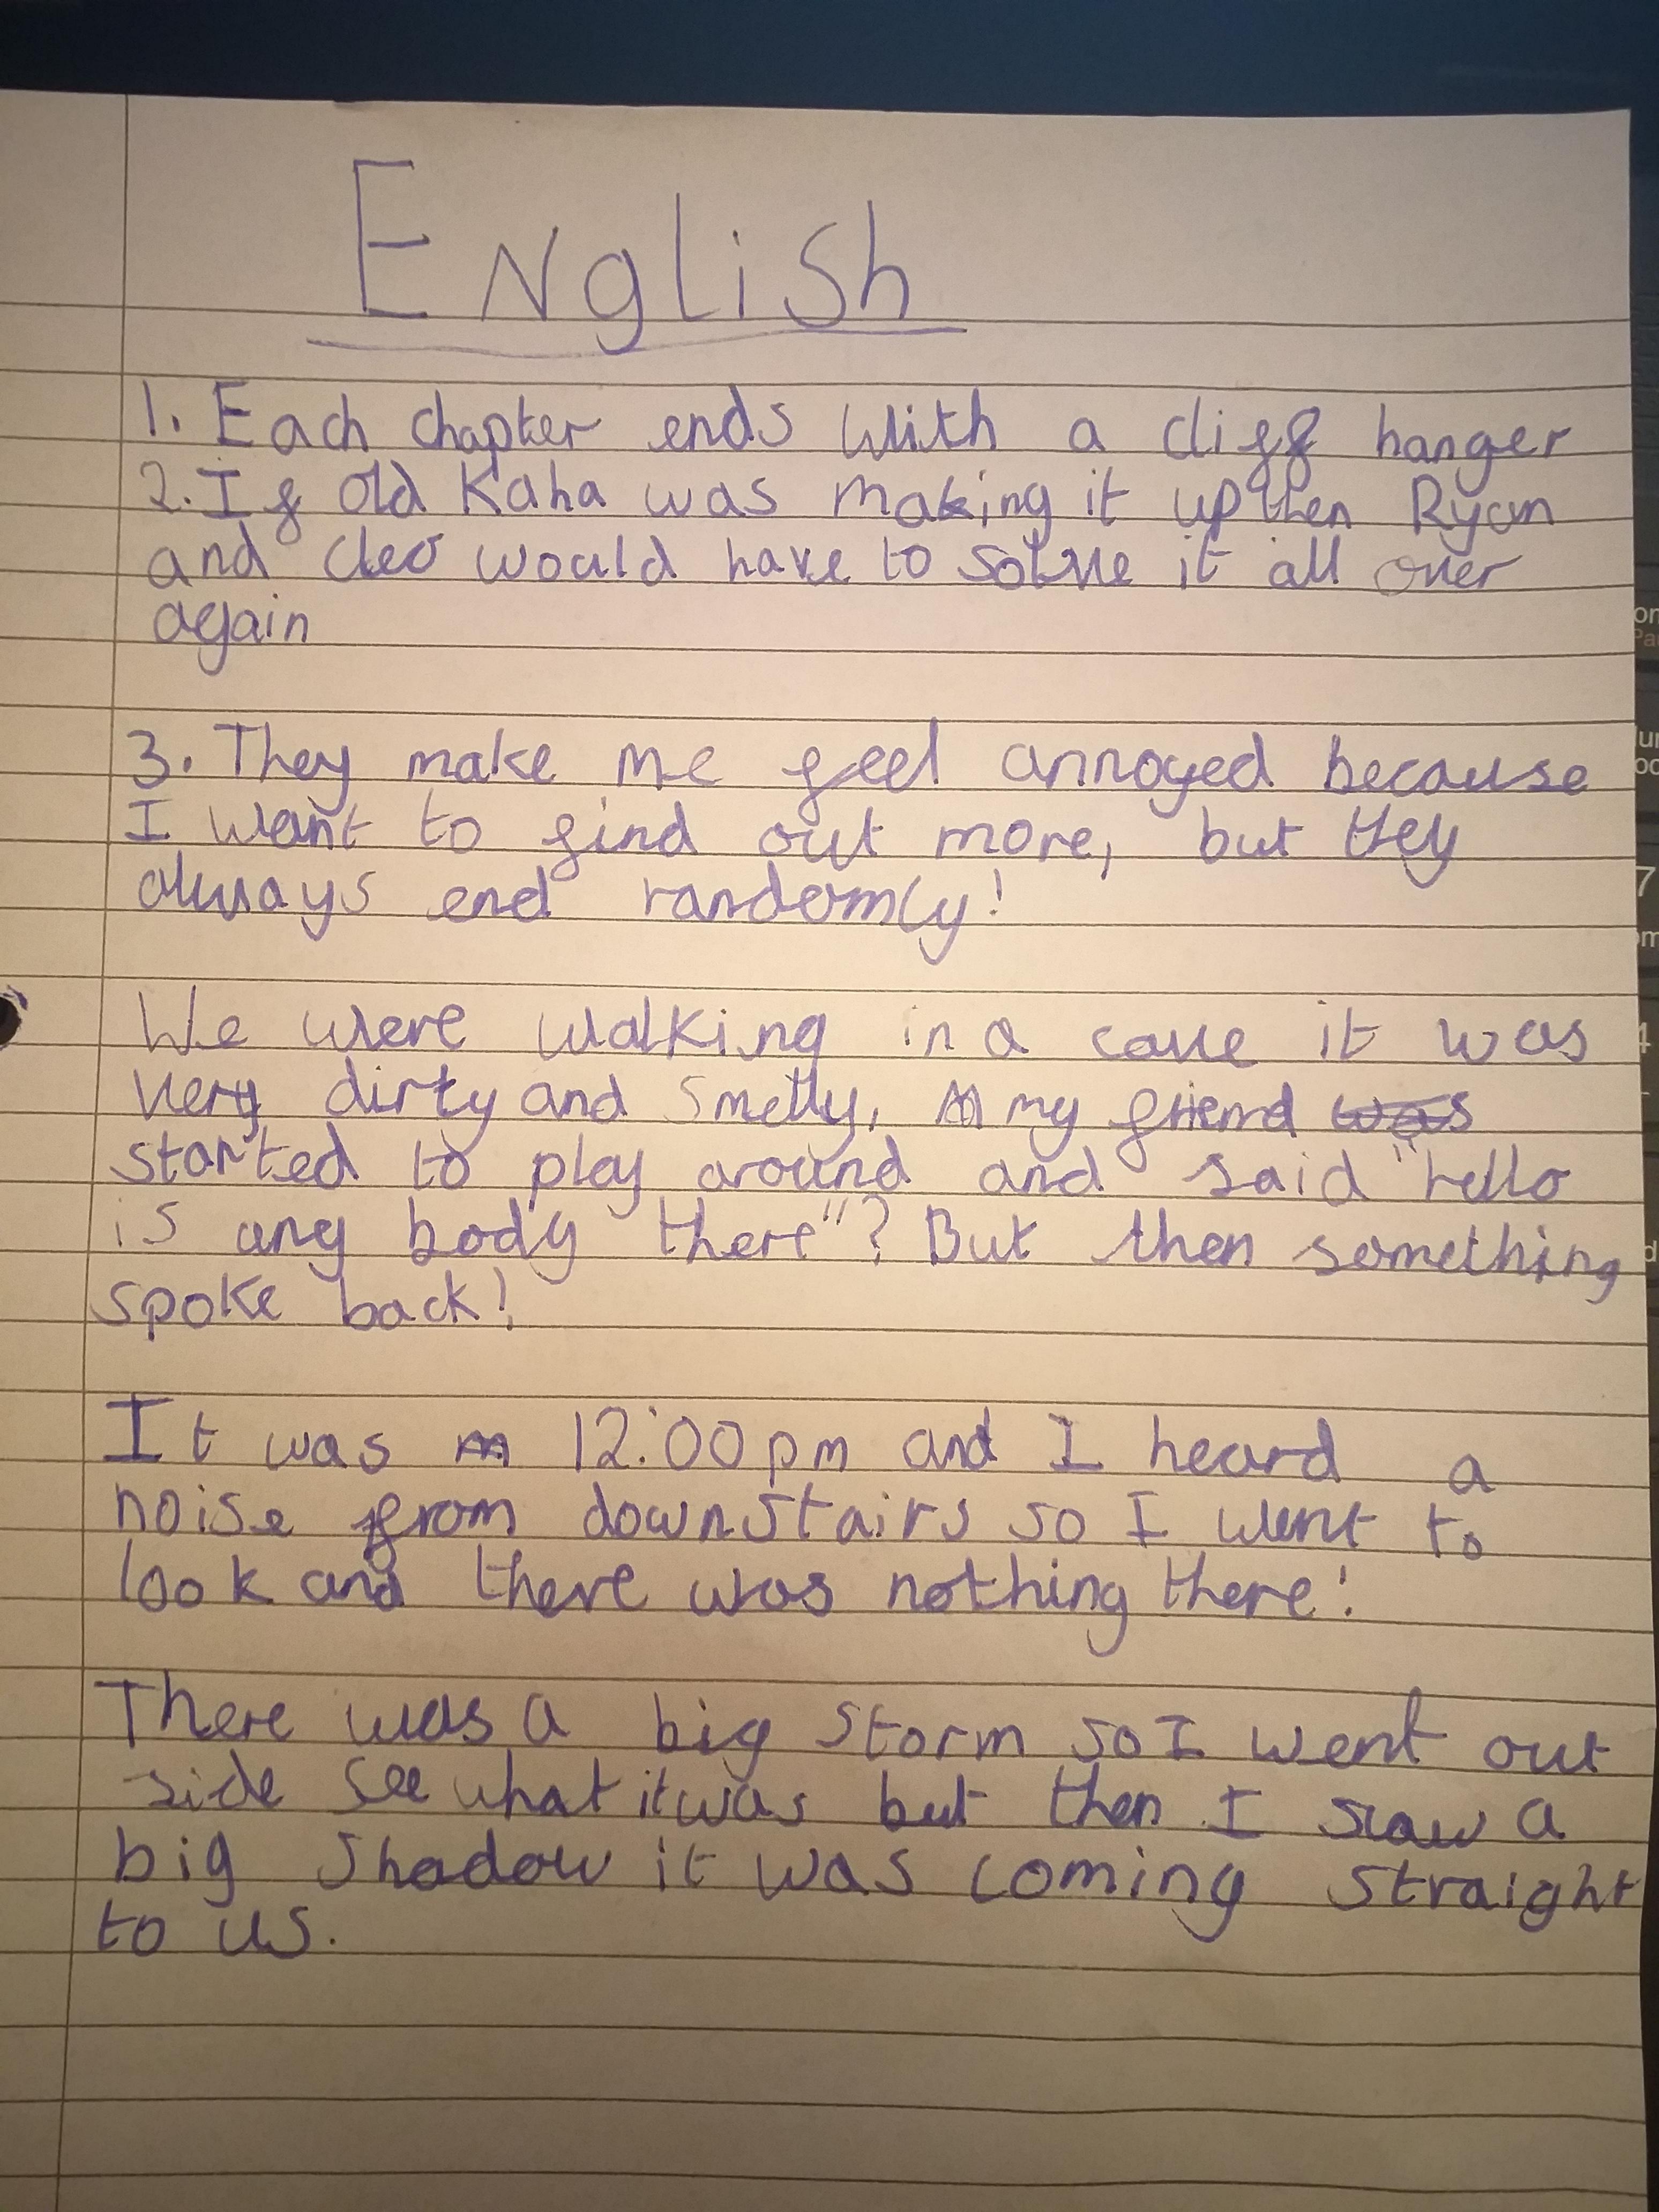 English
1. Each chapter ends with a cliff hanger
2. If old Kaha was making it up then Ryan
and Cleo would have to solve it all over
again
3. They make me feel annoyed because
I want to find out more, but they
always end randomly!
We were walking in a cave it was
very dirty and smelly, my friend was
started to play around and said "hello
is any body there"? But then something
spoke back!
It was 12:00pm and I heard a
noise from downstairs so I went to
look and there was nothing there!
There was a big storm so I went out
side see what it was but then I saw a
big shadow it was coming straight
to us.